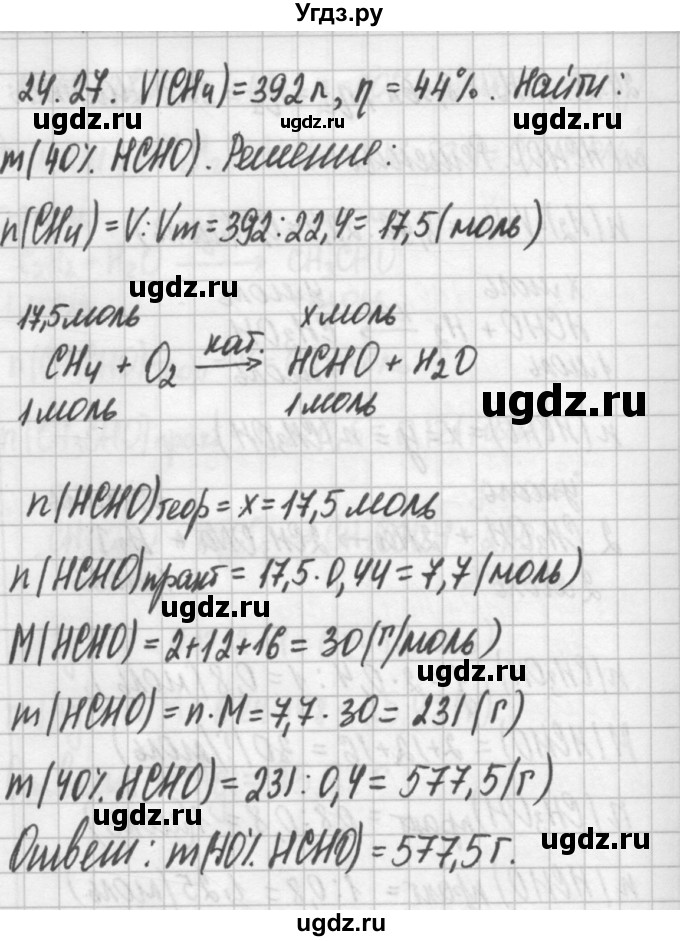 Угдз.ру
24.27. V(CH₄) = 392 л, η = 44%. Найти:
ugdz.ru ugdz.ru ugdz.ru
m(40% HCHO). Решение:
n(CH₄) = V : Vm = 392 : 22,4 = 17,5 (моль)
ugdz.ru
17,5 моль x моль
CH₄ + O₂ кат. → HCHO + H₂O
1 моль 1 моль
ugdz.ru
n(HCHO)теор = x = 17,5 моль
n(HCHO)практ = 17,5 · 0,44 = 7,7 (моль)
ugdz.ru
M(HCHO) = 2+12+16 = 30 (г/моль)
ugdz.ru
m(HCHO) = n · M = 7,7 · 30 = 231 (г)
m(40% HCHO) = 231 : 0,4 = 577,5 (г)
ugdz.ru
Ответ: m(40% HCHO) = 577,5 г.
ugdz.ru
ugdz.ru